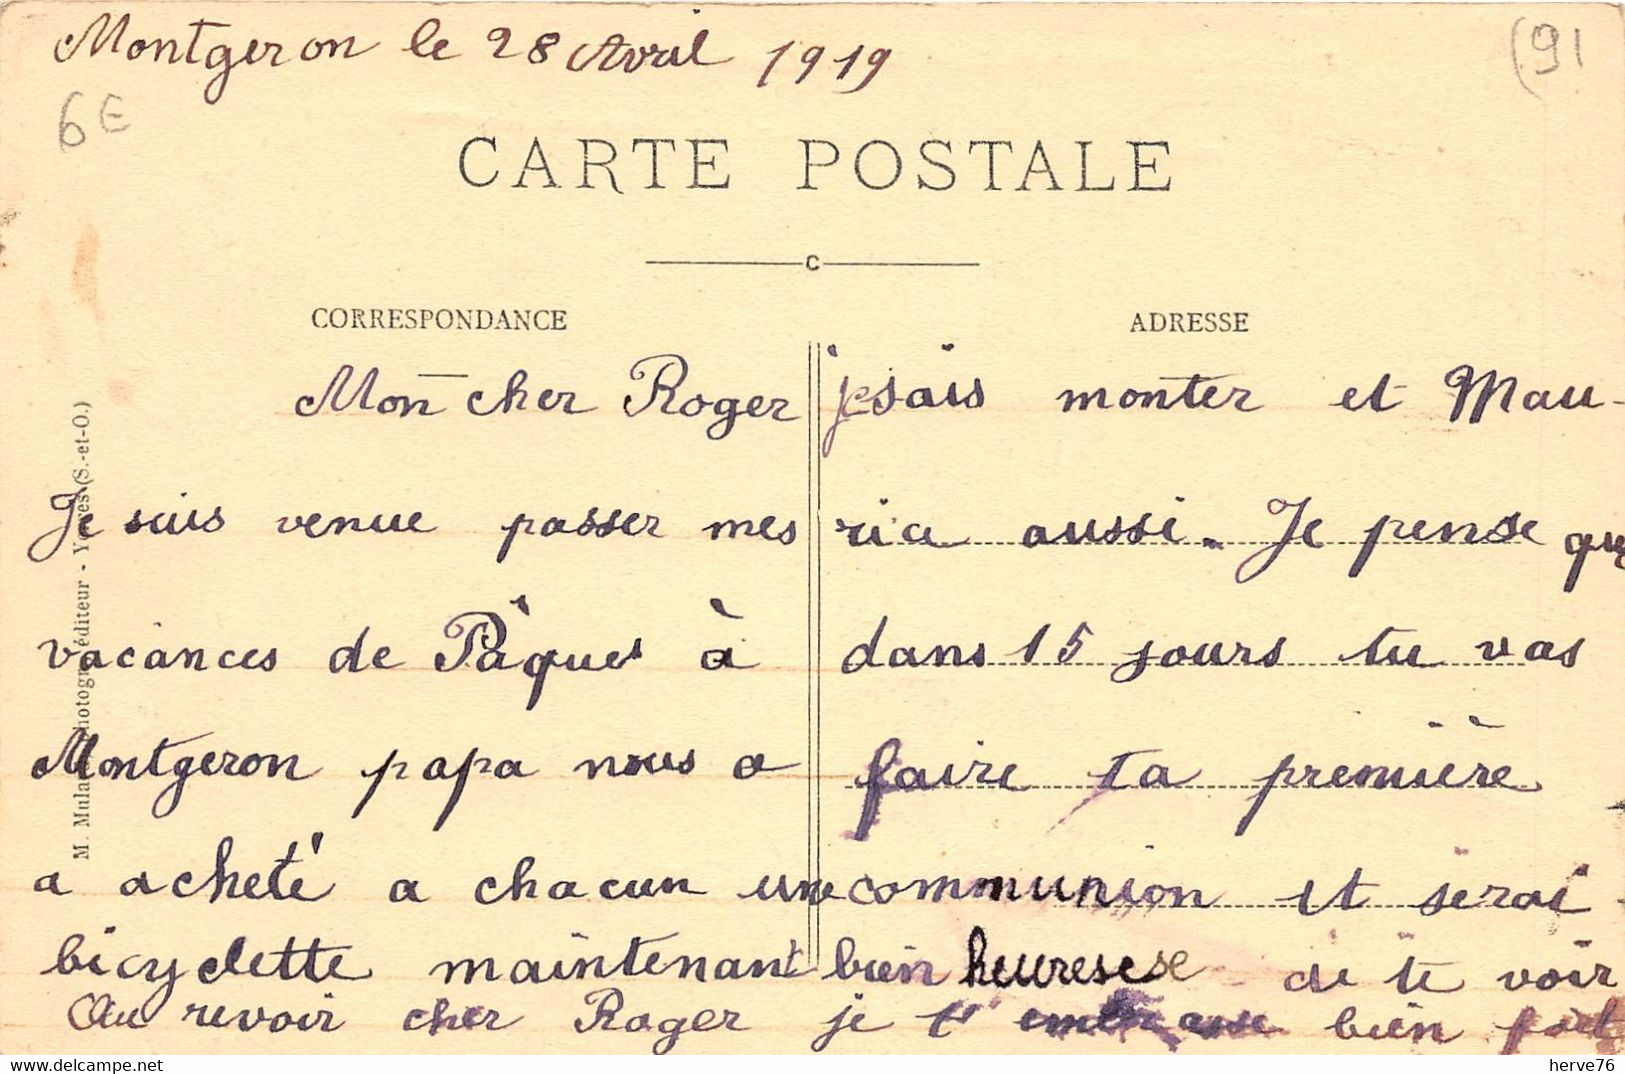 Montgeron le 28 Avril 1919
(91
6E
CARTE POSTALE
C
CORRESPONDANCE
Mon cher Roger
Je suis venue passer mes
vacances de Pâques à
Montgeron papa nous a
a acheté a chacun une
bicyclette maintenant
ADRESSE
je sais monter et Mau-
ria aussi. Je pense que
dans 15 jours tu vas
faire ta première
communion et serai
bien heurese de te voir
Au revoir cher Roger je t'embrasse bien fort
éditeur - Yerres (S.-et-O.)
herve76